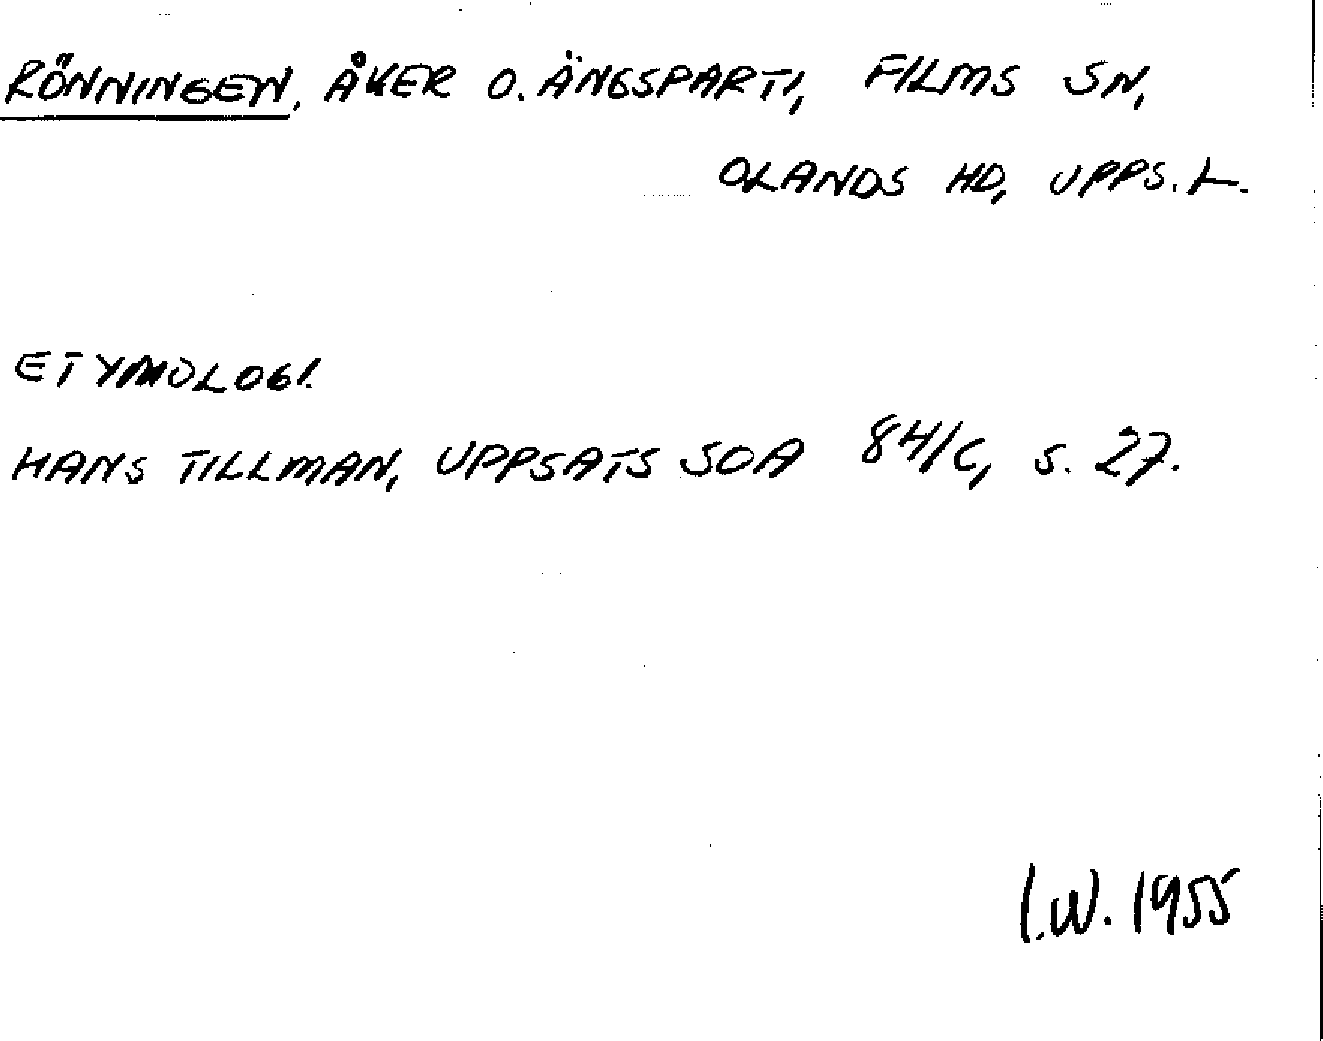 RÖNNINGEN, ÅKER O. ÄNGSPARTI, FILMS SN,
OLANDS HD, UPPS. L.
ETYMOLOGI.
HANS TILLMAN, UPPSATS SOA 84/C, S. 27.
I.W. 1955